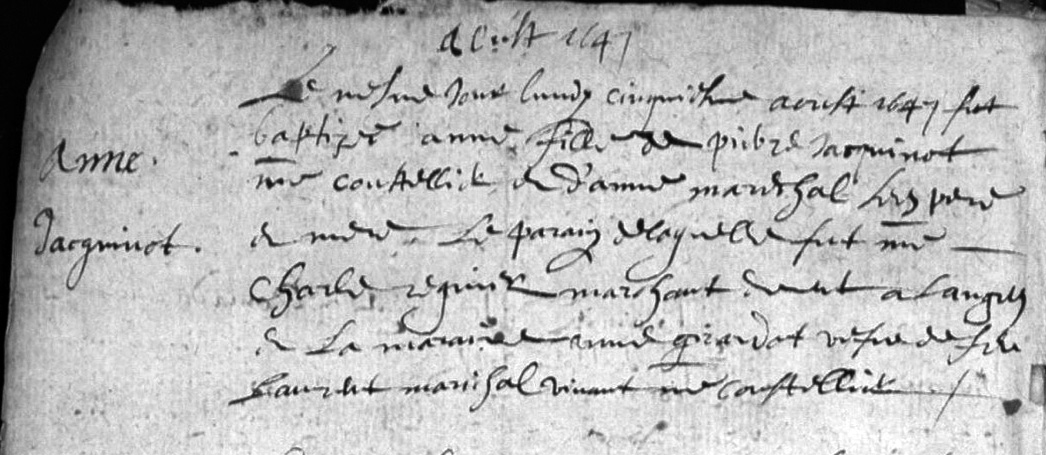 Aoust 1647
Le mesme Jour lundy cinquiesme aoust 1647 fut
Anne
baptizee anne fille de pierre Jacquinot
me coustellier & d'anne mareschal ses pere
Jacquinot.
& mere. Le parain de laquelle fut me
Charle regnier marchant demt a Langres
& La maraine anne girardot vefve de feu
Laurent marichal vivant me coustellier